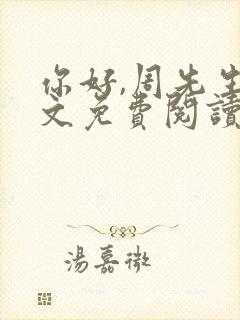 你好,周先生
文免費閱讀
湯嘉微